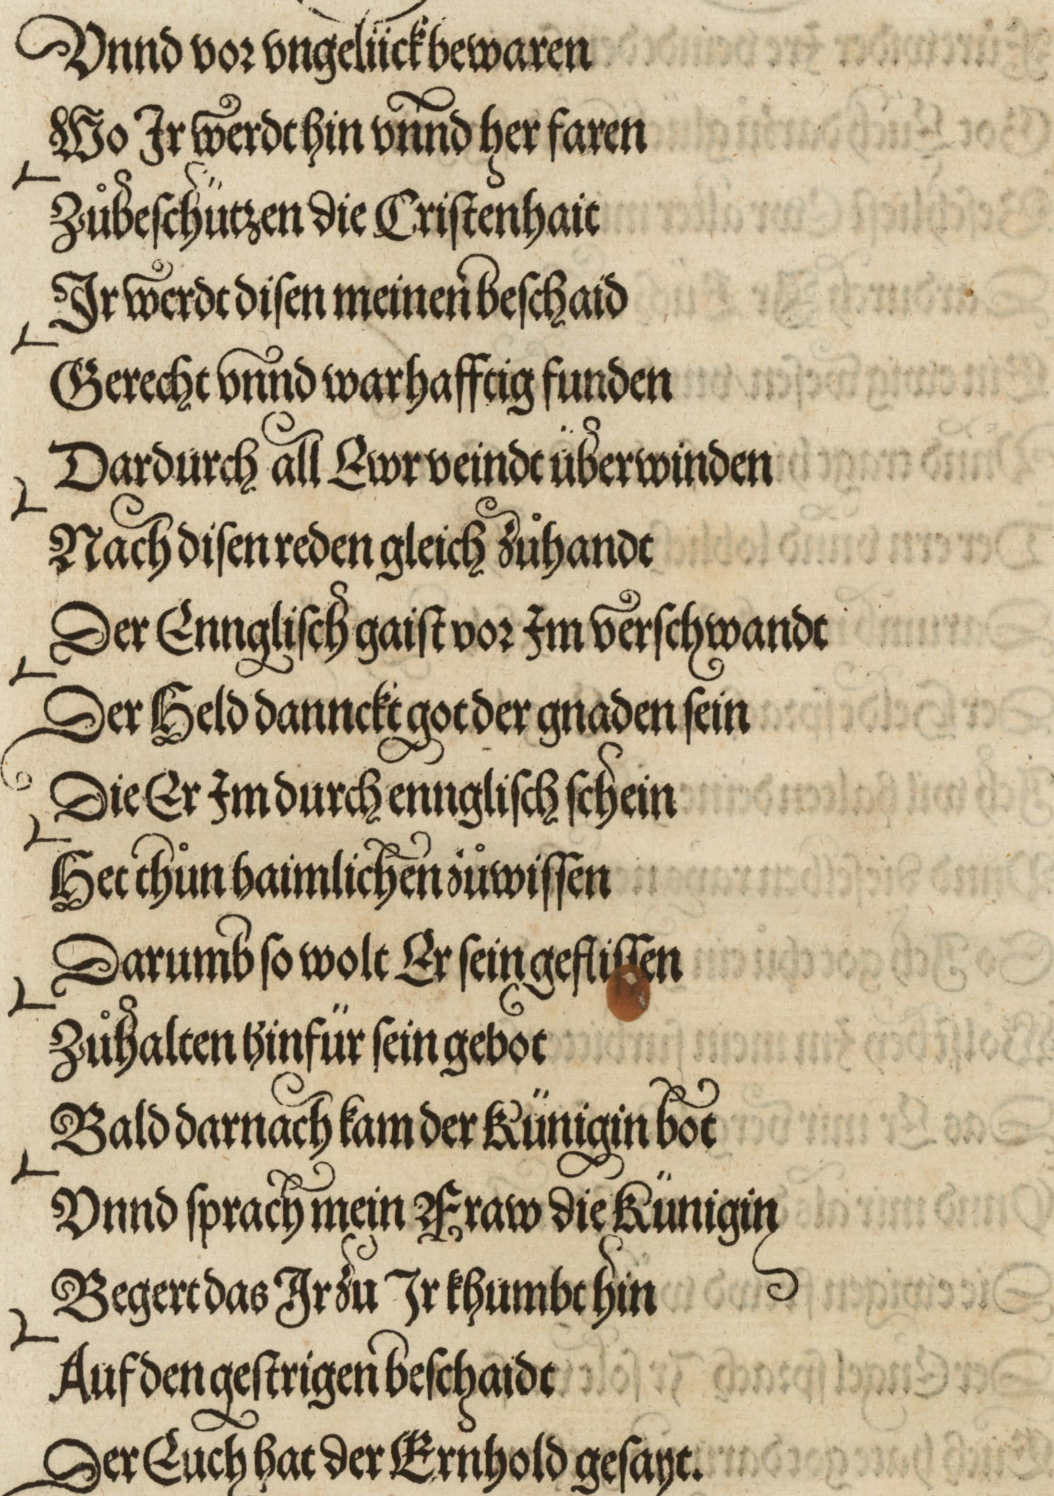 Vnnd vor vngelück bewaren
Wo Jr werdt hin vnnd her faren
Zůbeschützen die Cristenhait
Jr werdt disen meinen beschaid
Gerecht vnnd warhafftig funden
Dardurch all Ewr veindt überwinden
Nach disen reden gleich zůhandt
Der Ennglisch gaist vor Im verschwandt
Der Held dannckt got der gnaden sein
Die Er Im durch ennglisch schein
Het thůn haimlichen zůwissen
Darumb so wolt Er sein geflissen
Zůhalten hinfür sein gebot
Bald darnach kam der Künigin bot
Vnnd sprach mein Fraw die Künigin
Begert das Jr zu Jr khumbt hin
Auf den gestrigen beschaidt
Der Euch hat der Ernhold gesayt.